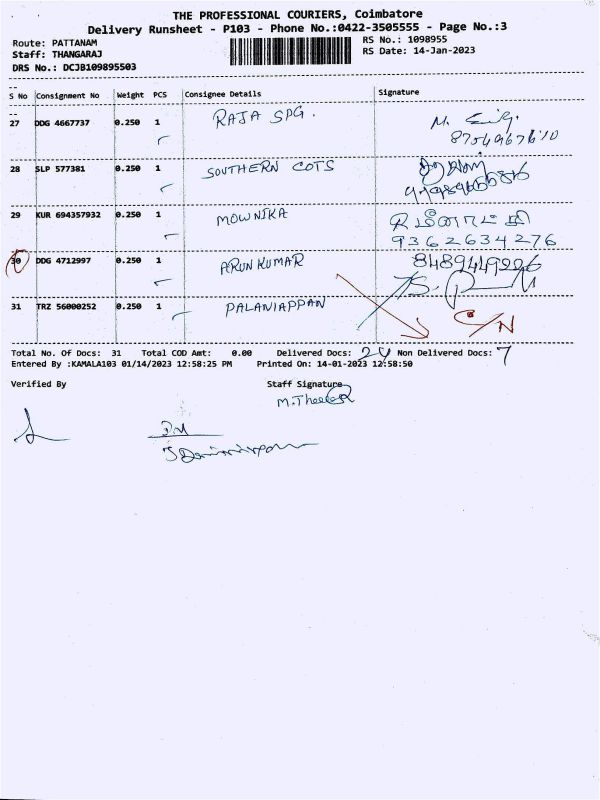 THE PROFESSIONAL COURIERS, Coimbatore
Delivery Runsheet - P103 - Phone No.:0422-3505555 - Page No.:3
Route: PATTANAM
RS No.: 1098955
Staff: THANGARAJ
RS Date: 14-Jan-2023
DRS No.: DCJB109895503
S No Consignment No Weight PCS Consignee Details Signature
27 DDG 4667737 0.250 1 RAJA SPG.
28 SLP 577381 0.250 1 SOUTHERN COTS
29 KUR 694357932 0.250 1 MOWNIKA
9362634276
30 DDG 4712997 0.250 1 ARUN KUMAR
31 TRZ 56000252 0.250 1 PALANIAPPAN C/N
Total No. Of Docs: 31 Total COD Amt: 0.00 Delivered Docs: 24 Non Delivered Docs: 7
Entered By :KAMALA103 01/14/2023 12:58:25 PM Printed On: 14-01-2023 12:58:50
Verified By Staff Signature